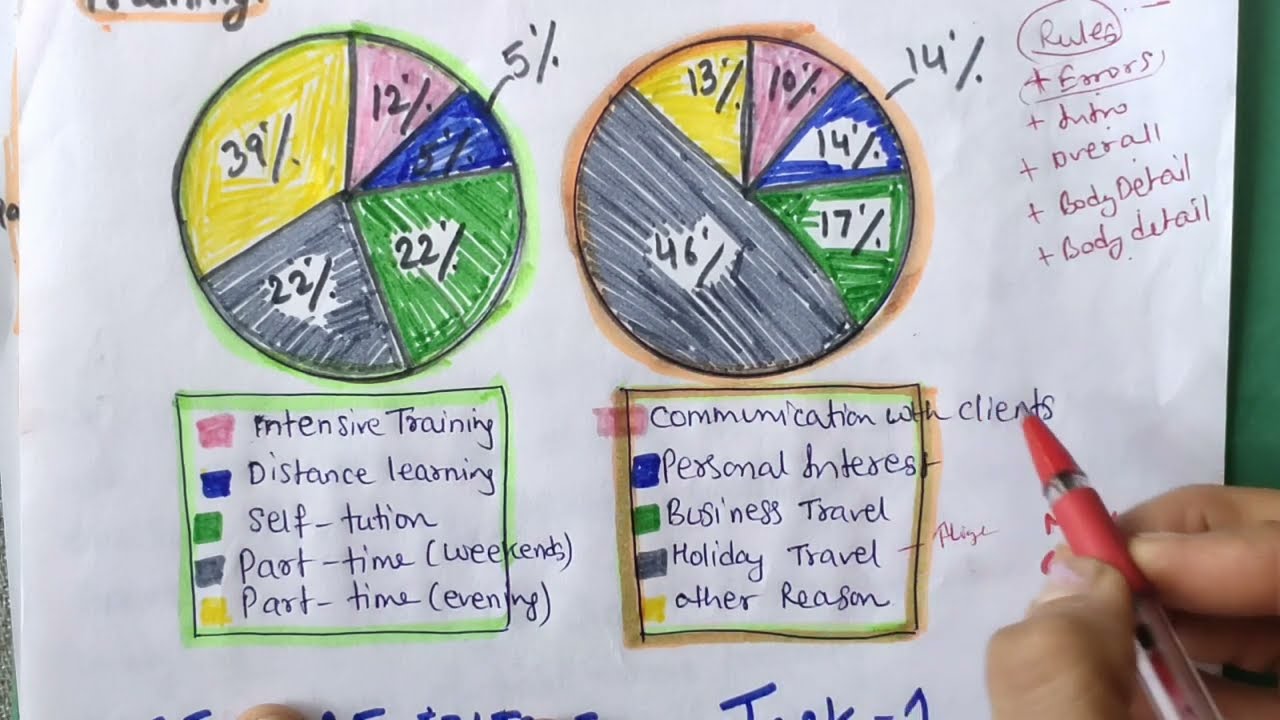 Training.
39% 12% 5%
5%
22% 22%
13% 10% 14%
14%
46% 17%
Rules
+ Errors
+ Intro
+ Overall
+ Body Detail
+ Body detail
Intensive Training
Distance learning
Self-tution
Part-time (weekends)
Part-time (evening)
Communication with clients
Personal Interest
Business Travel
Holiday Travel
other Reason
Task-1